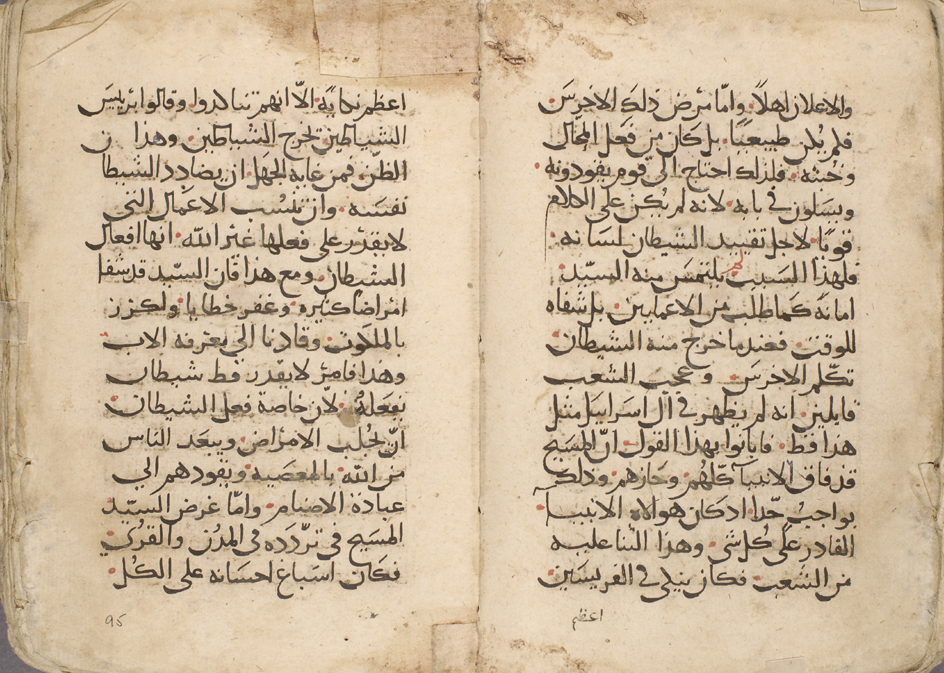 والاعلان اهلاً. وامّا مرض ذلك الاخرس
فلم يكن طبيعيًا. بل كان من فعل المحّال
وخبثه. فلذلك احتاج الى قوم يقودونه
ويسلون في بابه. لانه لم يكن على الكلام
قويًا لاجل تقييد الشيطان لسانه.
فلهذا السبب لم يلتمس منه السيّد
امانة كما طلب من الاعمايين. بل شفاه
للوقت. فعند ما خرج منه الشيطان
تكلم الاخرس. وعجب الشعب
قايلين انه لم يظهر في ال اسراييل مثل
هذا قط. فابانوا بهذا القول. انّ المسيح
قد فاق الانبيا كلّهم وجازهم. وذلك
بواجب جّدا. اذ كان هولاء الانبيا
القادر على كل شي. وهذا الثنا عليه
من الشعب. فكان ينكي في الفريسيين
اعظم
اعظم نكاية. الّا انهم تناكروا وقالوا بريس
الشياطين تخرج الشياطين. وهذا
الظنّ. فمن غاية الجهل. ان يضادد الشيطان
نفسه. وان تنسب الاعمال التي
لا يقدر على فعلها غير الله. انها افعال
الشيطان. ومع هذا فان السيّد قد شفا
امراضا كثيره. وغفر خطايا. وكرز
بالملكوت. وقادنا الى معرفة الاب
وهذا فامر لا يقدر قط شيطان
يفعله. لانّ خاصة فعل الشيطان.
انّ يجلب الامراض. ويبعد الناس
من الله. بالمعصية. ويقودهم الى
عبادة الاصنام. وامّا غرض السيّد
المسيح في تردّده في المدن والقرى.
فكان اسباغ احسانه على الكل.
95